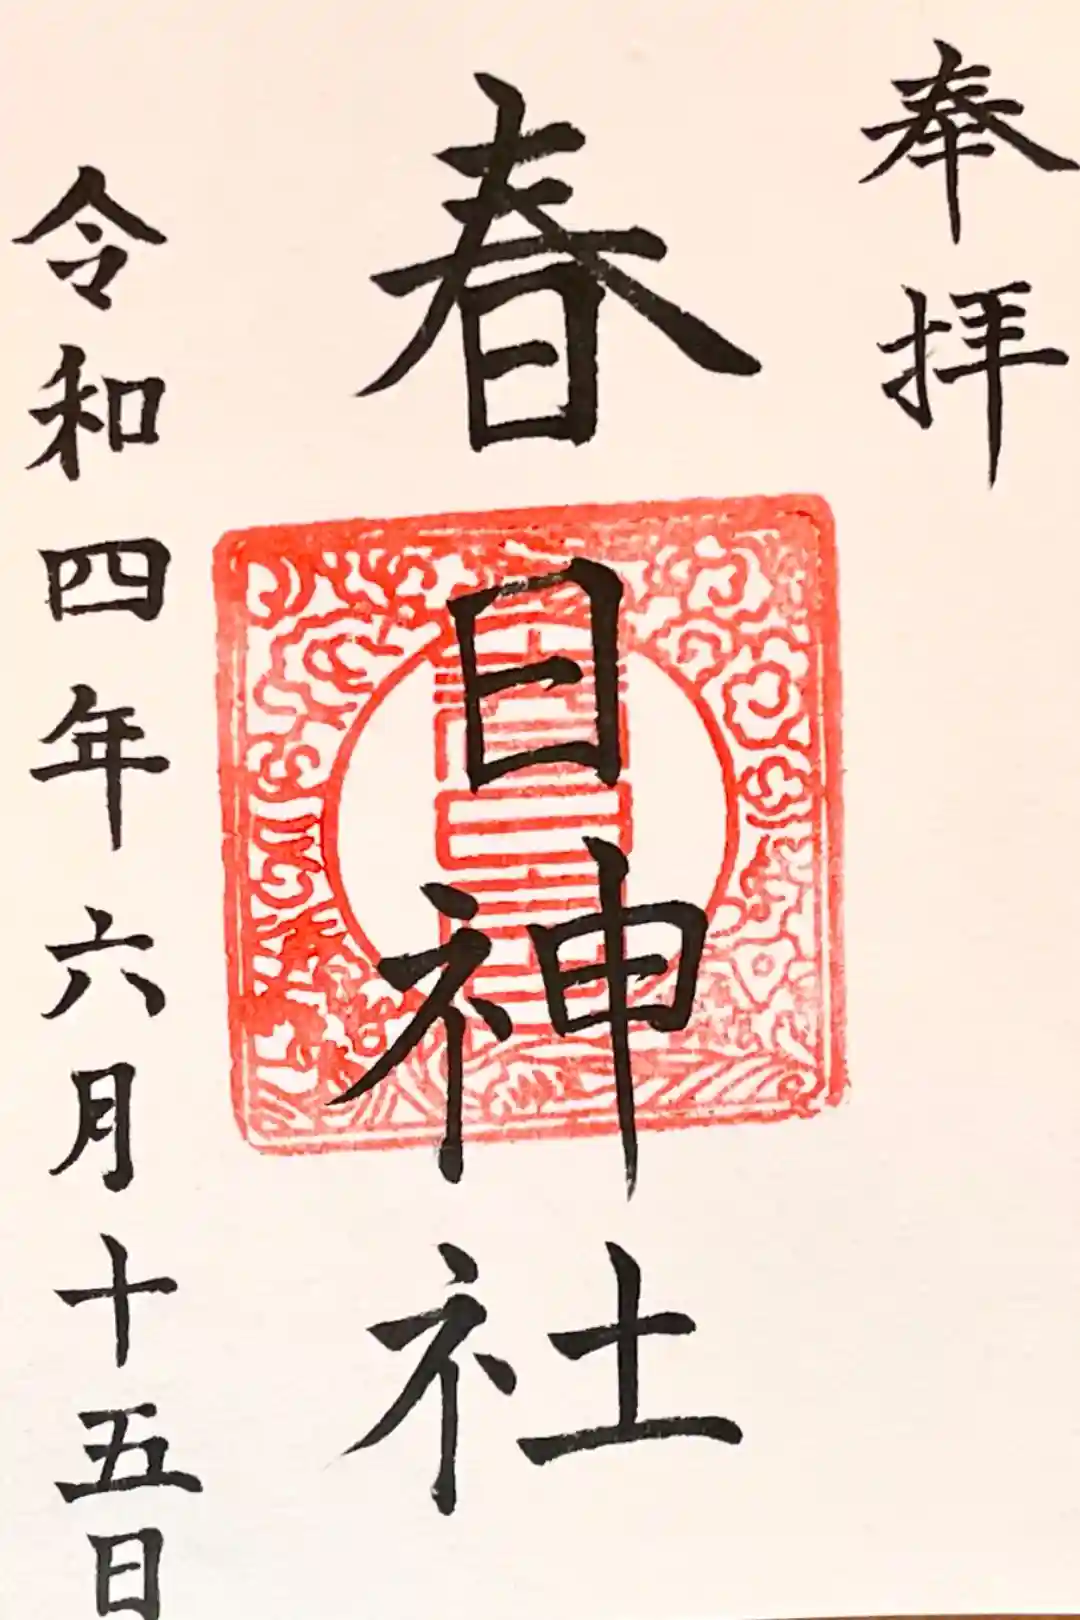 奉拝
春日神社
令和四年六月十五日